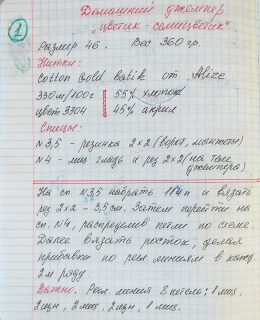 1
Домашний джемпер
"цветик-семицветик"
Размер 46. Вес 360 гр.
Нитки:
Cotton Gold batik от Alize
330м/100г 55% хлопок
цвет 3304 45% акрил
Спицы:
№3,5 - резинка 2×2 (ворот, манжеты)
№4 - лиц. гладь и рез 2×2 (на теле
джемпера)
На сп. №3,5 набрать 114п и вязать
рез 2×2 - 3,5см. Затем перейти на
сп. №4, распределив петли по схеме.
Далее вязать росток, делая
прибавки по регл. линиям в кажд.
2м ряду.
Важно. Регл. линия 8 петель: 1 лиц,
2изн, 2лиц, 2изн, 1 лиц.